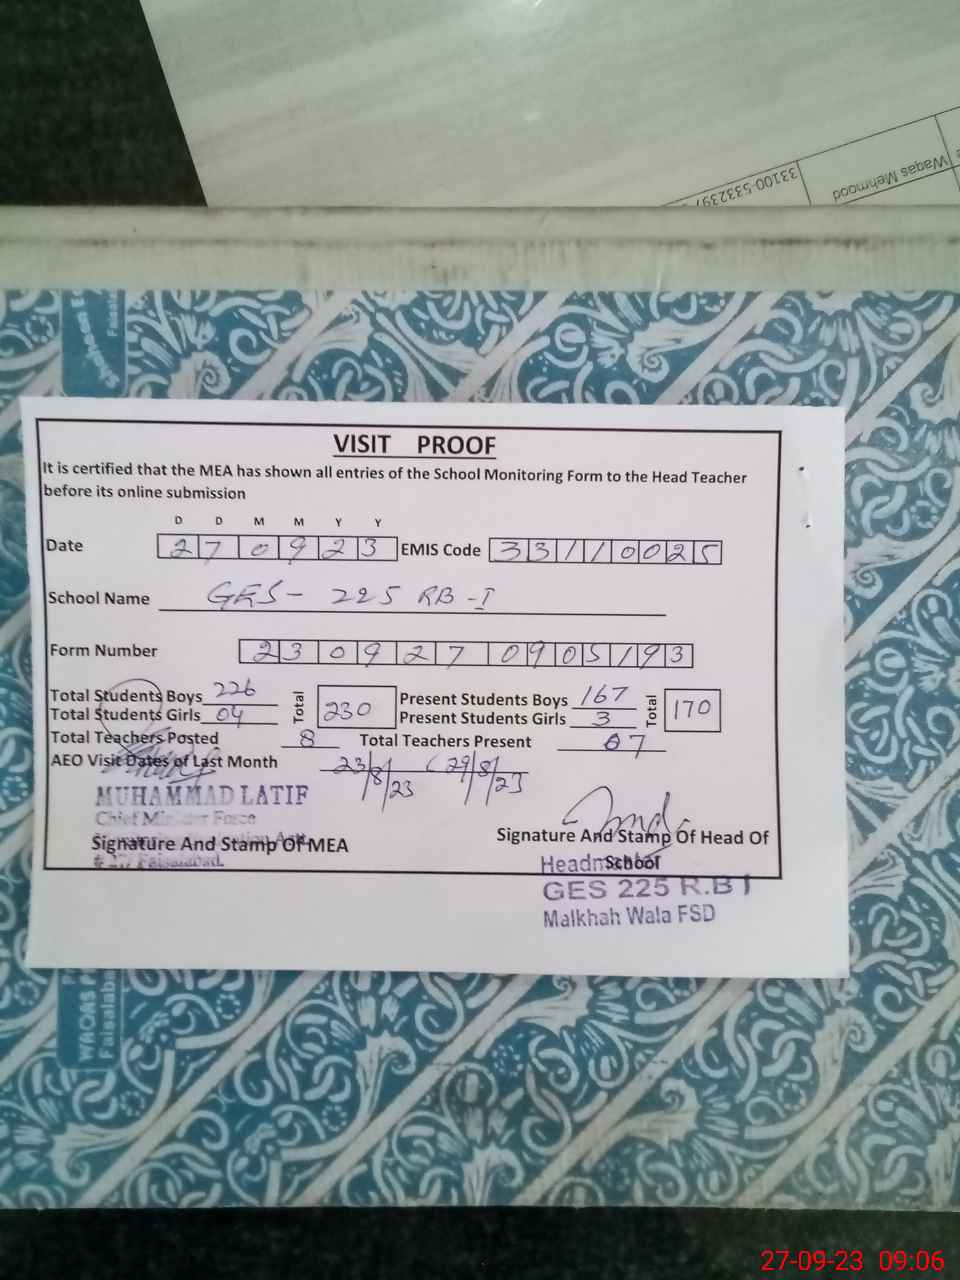 33100-533239
Waqas Mehmood
VISIT PROOF
It is certified that the MEA has shown all entries of the School Monitoring Form to the Head Teacher
before its online submission
D D M M Y Y
Date 2 7 0 9 2 3 EMIS Code 3 3 1 1 0 0 2 5
School Name GES - 225 RB - I
Form Number 2 3 0 9 2 7 0 9 0 5 1 9 3
Total Students Boys 226 Total 230 Present Students Boys 167 Total 170
Total Students Girls 04 Present Students Girls 3
Total Teachers Posted 8 Total Teachers Present 07
AEO Visit Dates of Last Month 23/8/23 29/8/23
MUHAMMAD LATIF
Chief Minister Force
Signature And Stamp Of MEA
Signature And Stamp Of Head Of
School
Headmaster
GES 225 R.B I
Malkhah Wala FSD
WAQAS
Faisalab
27-09-23 09:06